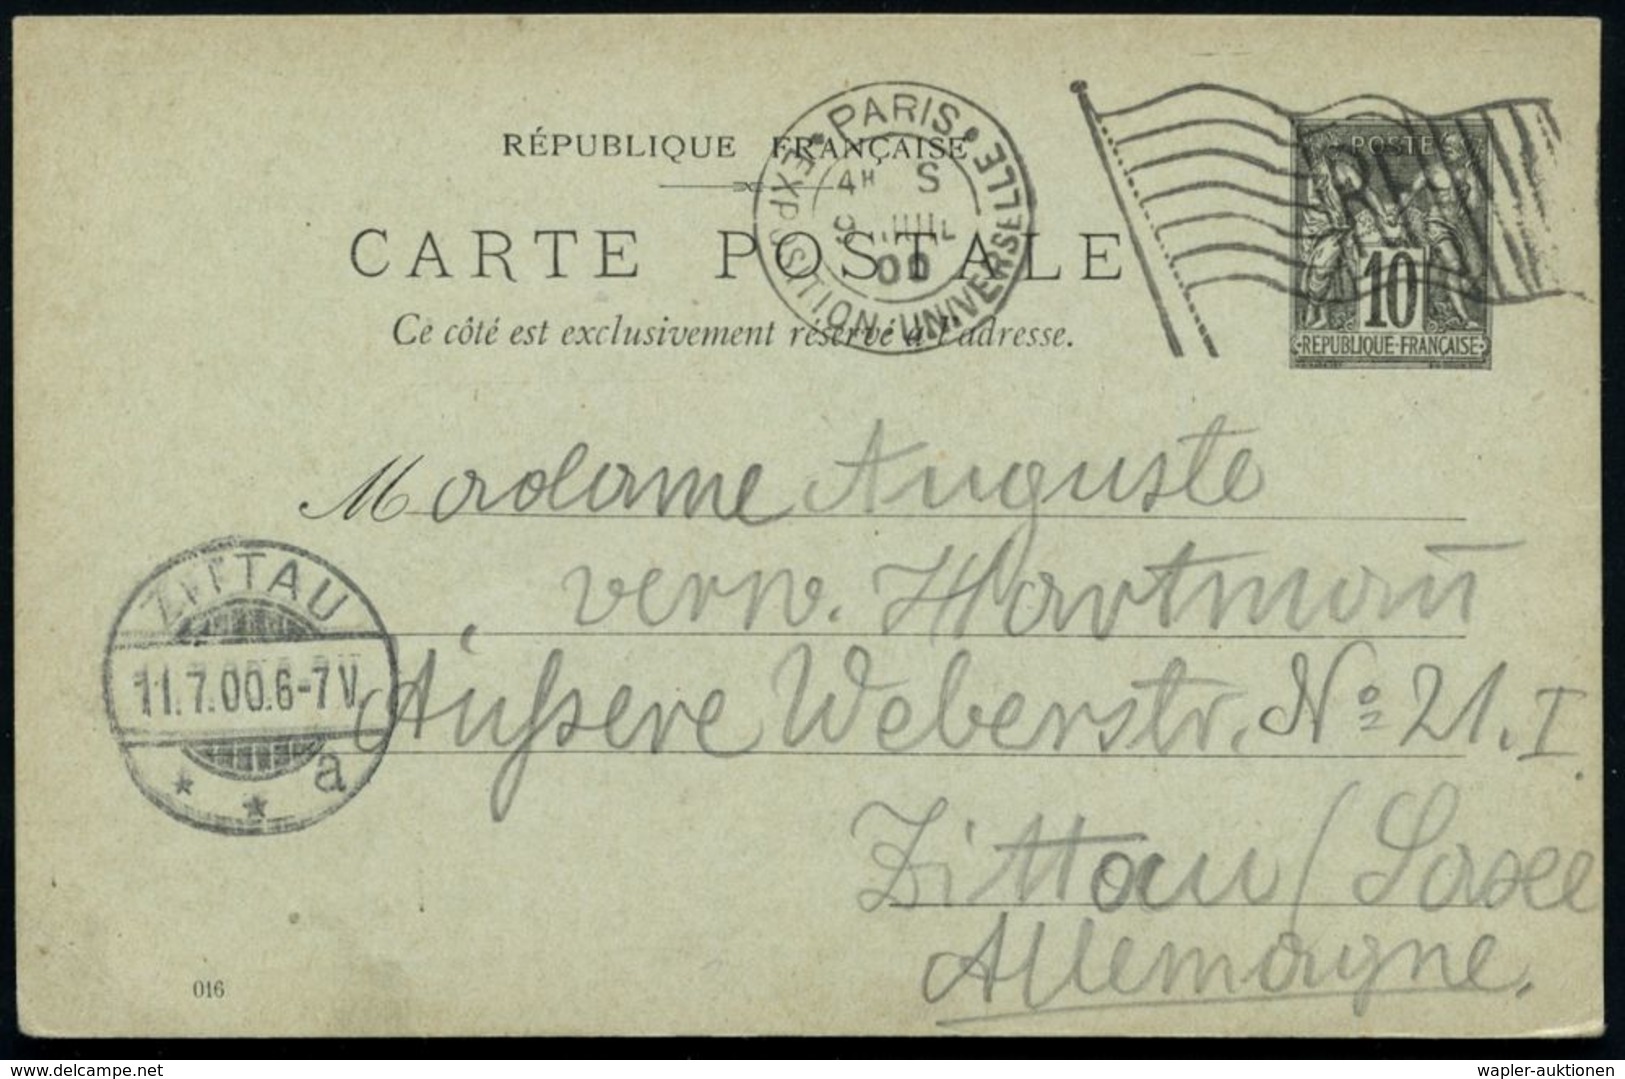 RÉPUBLIQUE FRANÇAISE
CARTE POSTALE
Ce côté est exclusivement réservé à l'adresse.
PARIS
EXPOSITION UNIVERSELLE
4H S
9 JUIL
00
RF
POSTES
10
REPUBLIQUE FRANÇAISE
Madame Auguste
verw. Hartmañ
Äußere Weberstr. No 21. I.
Zittau (Saxe
Allemagne.
ZITTAU
11.7.00.6-7V.
* * a
016
wapler-auktionen.delcampe.net
wapler-auktionen